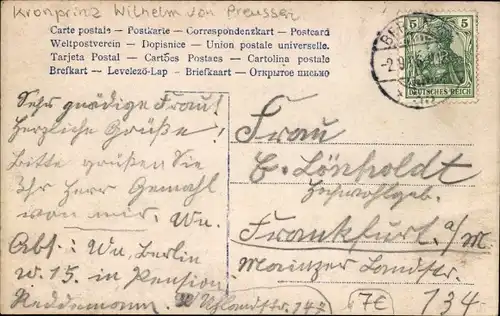 Kronprinz Wilhelm von Preussen
Carte postale - Postkarte - Correspondenzkart - Postcard
Weltpostverein - Dopisnice - Union postale universelle.
Tarjeta Postal - Cartões Postaes - Cartolina postale
Brefkart - Levelező-Lap - Briefkaart - Открытое письмо
5 5
DEUTSCHES REICH
BERLIN
Sehr gnädige Frau!
Herzliche Grüße!
Bitte grüßen Sie
Ihr Herr Gemahl
von mir. Wu.
Abs: Wu, Berlin
W. 15. in Pension
Uhlandstr. 147
Frau
E. Lönholdt
Hochwohlgeb.
Frankfurt a/M.
Mainzer Landstr.
134
7€